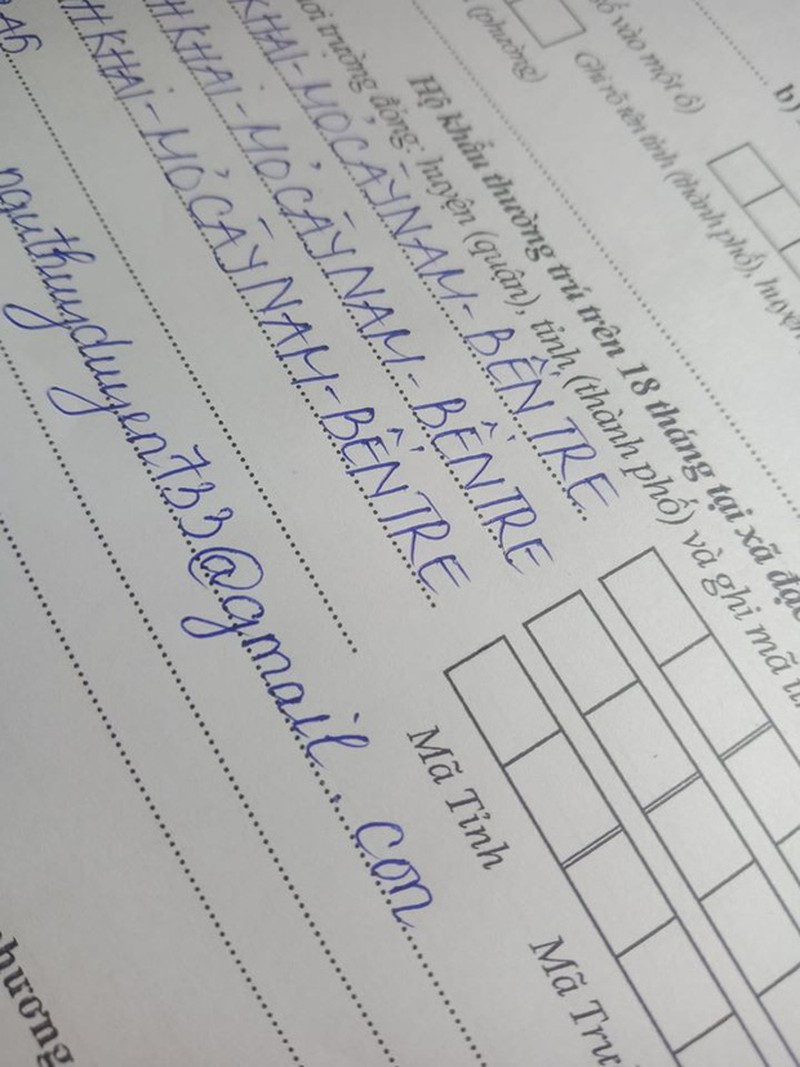 b)
ố vào một ô)
Ghi rõ tên tỉnh (thành phố), huyện
(phường)
Hộ khẩu thường trú trên 18 tháng tại xã đặc
nơi trường đóng: huyện (quận), tỉnh (thành phố) và ghi mã tỉ
KHAI - MỎ CÀY NAM - BẾN TRE
H KHẢI - MỎ CÀY NAM - BẾN TRE
H KHẢI - MỎ CÀY NAM - BẾN TRE
Mã Tỉnh
Mã Trư
nguthuyduyen733@gmail.con
hương